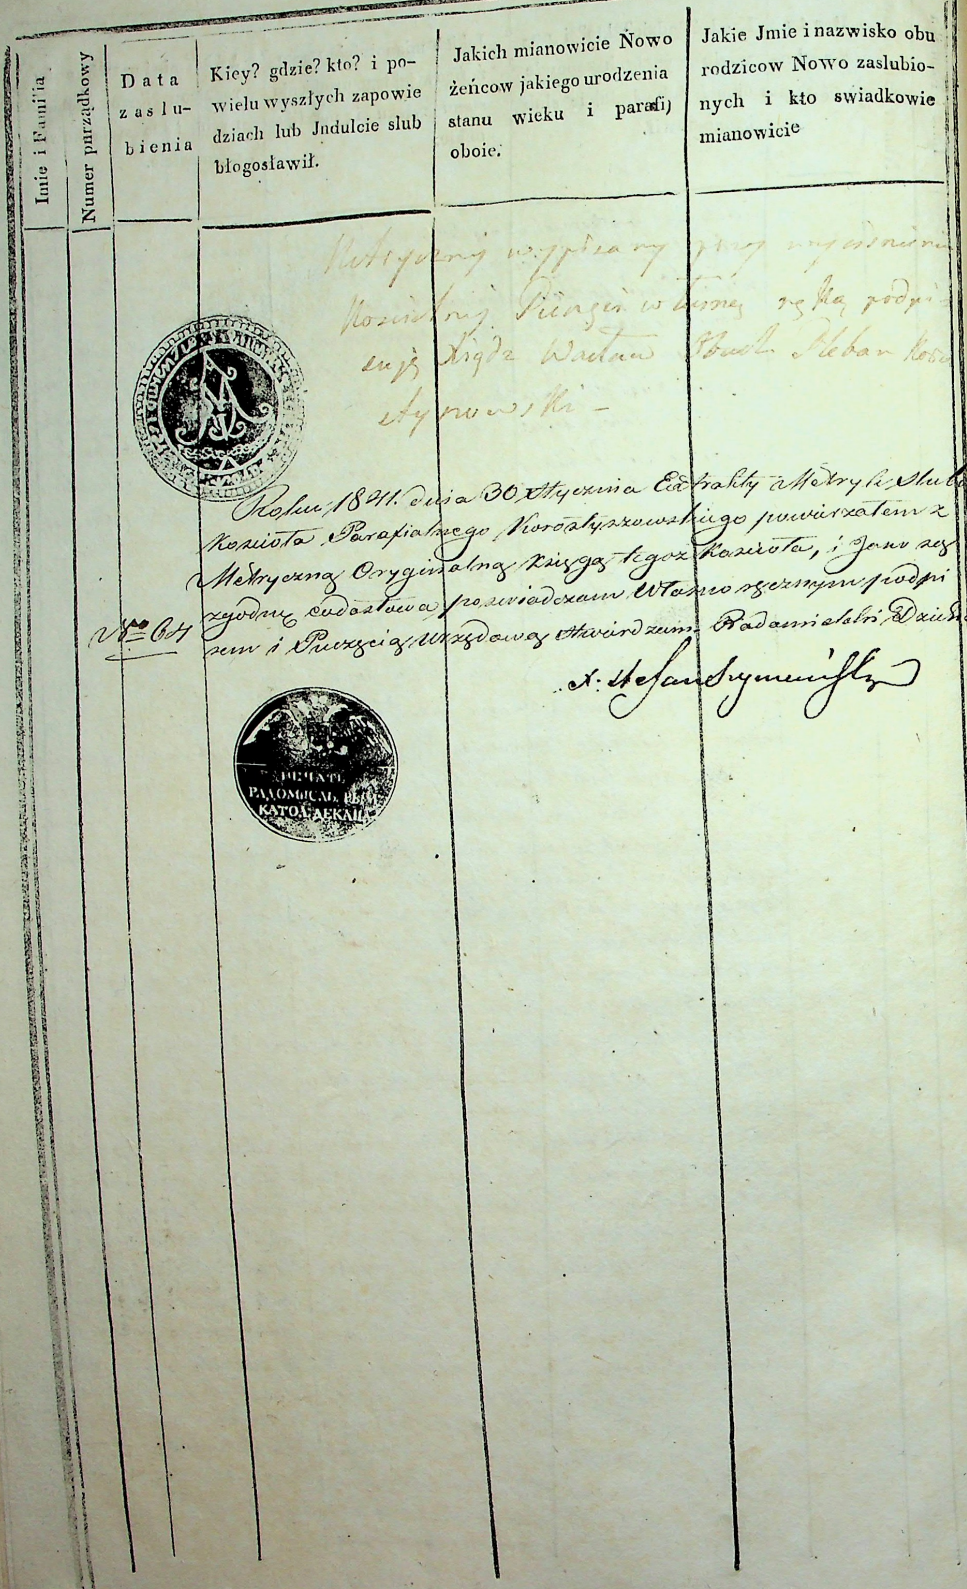 Imie i Familia
Numer purządkowy
Data
zaslu-
bienia
Kiey? gdzie? kto? i po-
wielu wyszłych zapowie
dziach lub Jndulcie slub
błogosławił.
Jakich mianowicie Nowo
żeńcow jakiego urodzenia
stanu wieku i parafij
oboie.
Jakie Jmie i nazwisko obu
rodzicow Nowo zaslubio-
nych i kto swiadkowie
mianowicie
Metryczney wypisany przy
Kościelney Pieczęci własną ręką podpi-
suję Xiądz Wacław Pleban
Roku 1841. dnia 30 stycznia Extrakty Metryk Slub
Kościoła Parafialnego Korostyszowskiego powierzałem z
Metryczną Oryginalną Księgą tegoż Kościoła, i Jako są
zgodne co do słowa, poswiadczam Własno ręcznym podpi
sem i Pieczęcią Urzędową stwierdzam. Radomielski Dzieka
N<sup>o</sup> 64
X: Stefan Szymański
ПЕЧАТЬ
РАДОМЫСЛЬ. РЫМ
КАТОЛ. ДЕКАНА